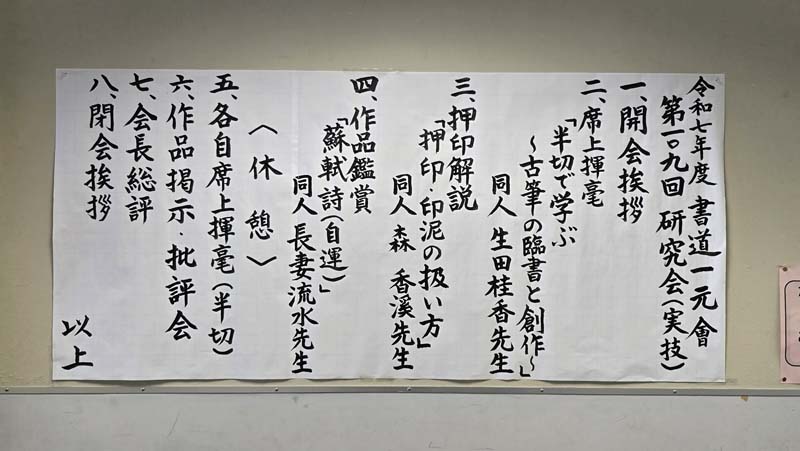 令和七年度 書道一元會
第一〇九回 研究会(実技)
一、開会挨拶
二、席上揮毫
「半切で学ぶ
～古筆の臨書と創作～」
同人 生田桂香先生
三、押印解説
「押印・印泥の扱い方」
同人 森 香溪先生
四、作品鑑賞
「蘇軾詩(自運)」
同人 長妻流水先生
〈休憩〉
五、各自席上揮毫(半切)
六、作品掲示・批評会
七、会長総評
八、閉会挨拶
以上